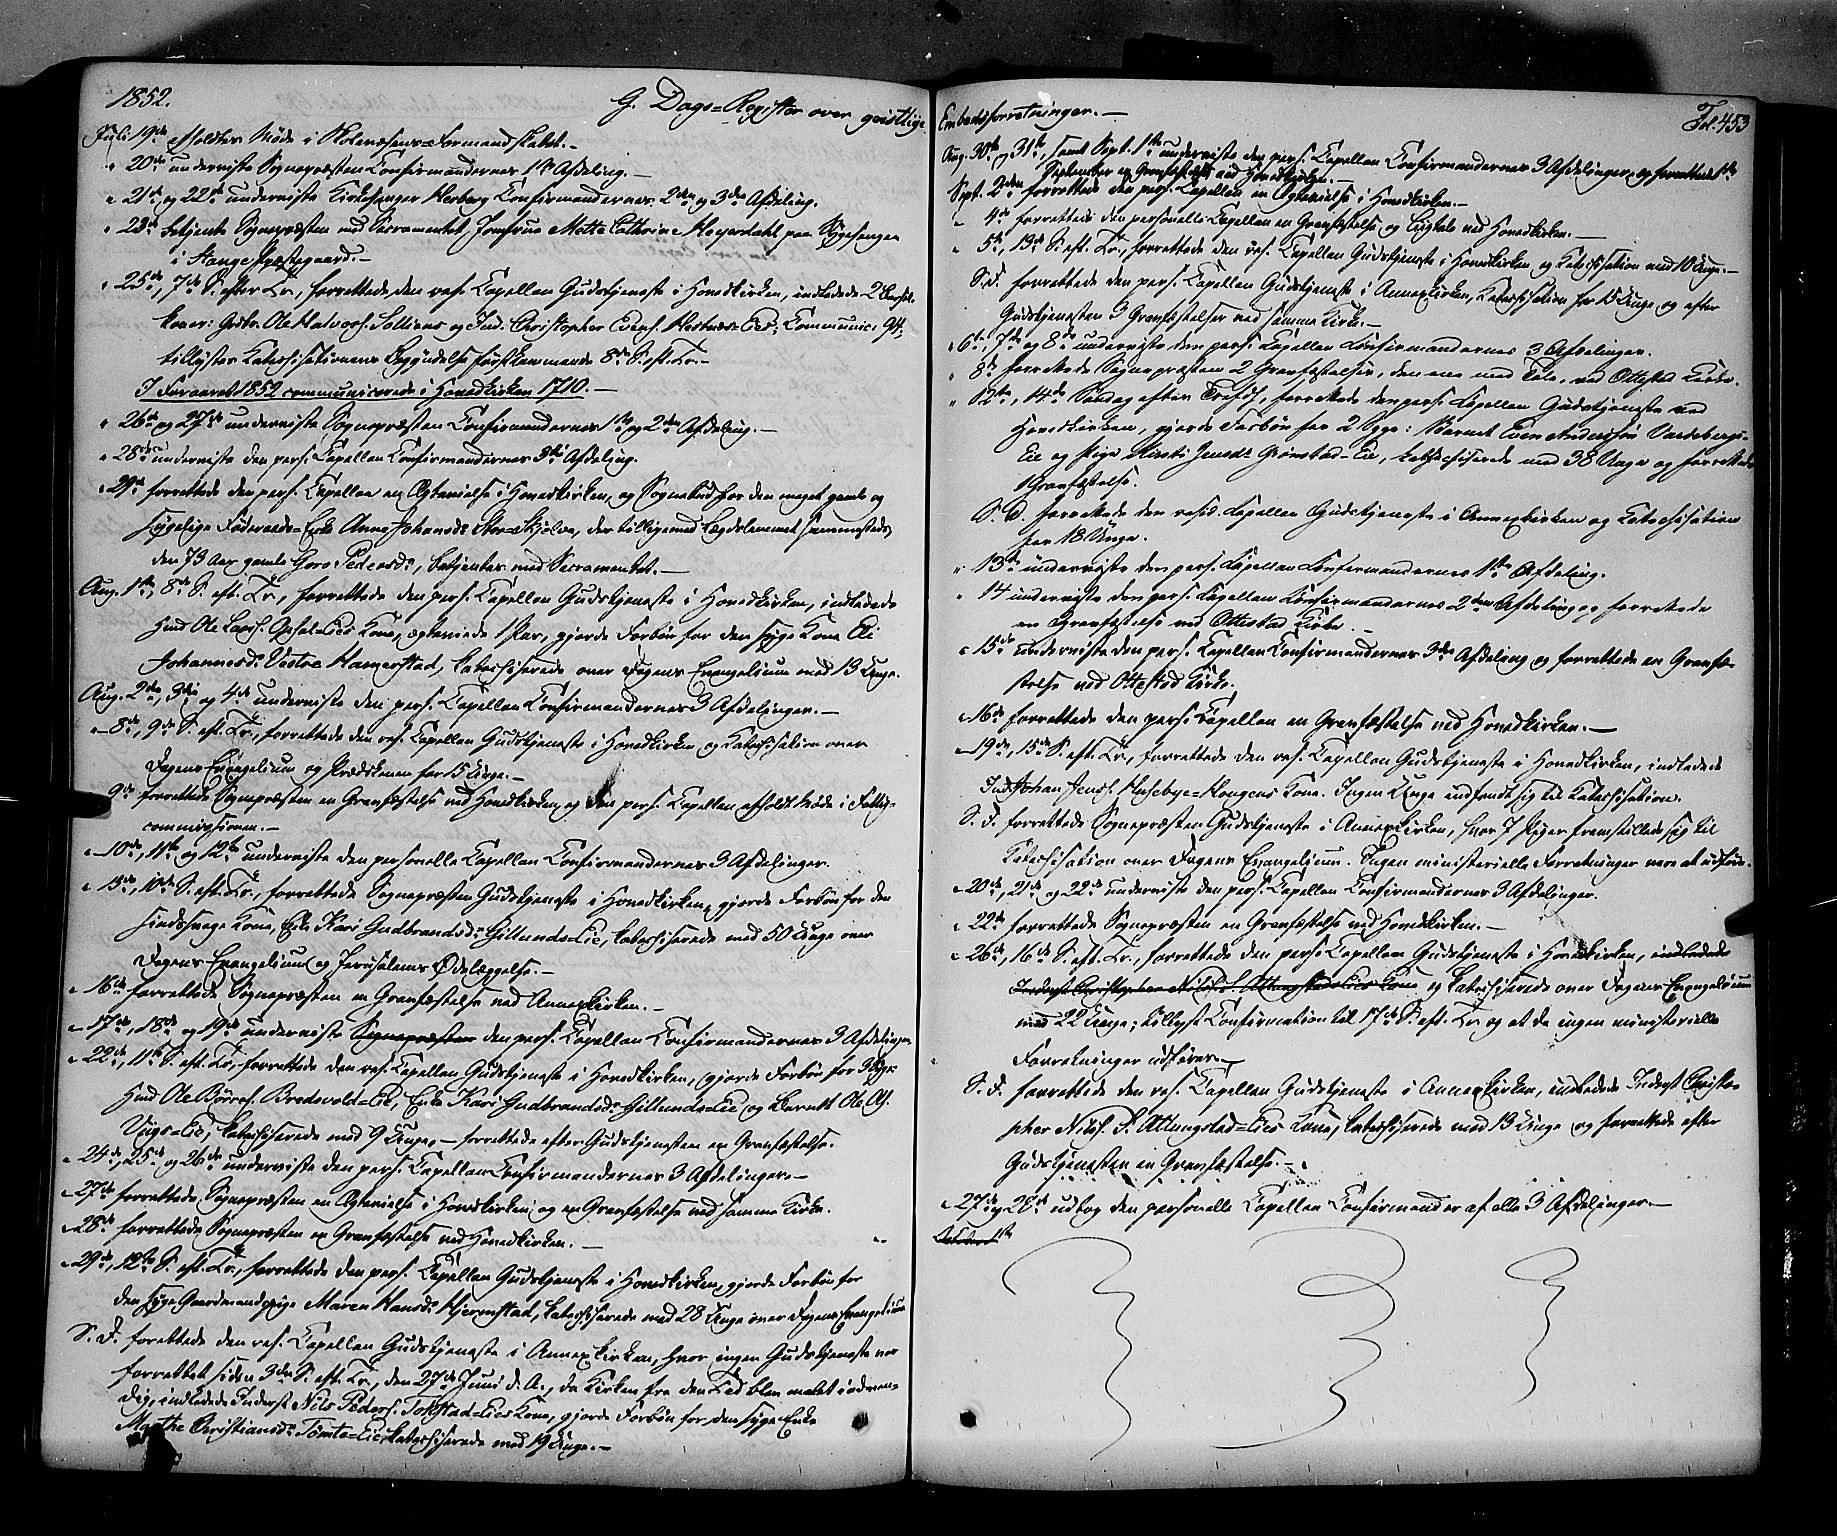 1852.
G. Dags=Register over geistlige
Juli 19de afholdtes Møde i Skolevæsens=Formandskabet.—
" 20de underviste Sognepræsten Confirmandernes 1ste Afdeling.—
" 21de og 22de underviste Kirkesanger Herberg Confirmandernes 2den og 3die Afdeling.
" 23de betjente Sognepræsten med Sacramentet Jomfrue Mette Cathrine Heyerdahl paa Sygesengen
i Stange Præstegaard.—
" 25de, 7de S. efter Tr., forrettede den res. Capellan Gudstjeneste i Hovedkirken, indledede 2 Barsel-
koner: Grdbr. Ole Halvors. Solliens og Ind. Christopher Evens. Hestnæs=Eies; Communic: 94;
tillystes Katechisationens Begyndelse førstkommende 8de S. eft. Tr.—
I Foraaret 1852 communicerede i Hovedkirken 1710.—
" 26de og 27de underviste Sognepræsten Confirmandernes 1ste og 2den Afdeling.—
" 28de underviste den pers. Capellan Confirmandernes 3die Afdeling.
" 29de forrettede den pers. Capellan en Ægtevielse i Hovedkirken, og Sognebud for den meget gamle og
sygelige Føderaads=Enke Anne Johansd. Skjelve, der tilligemed Lægdslemmet sammesteds,
den 73 Aar gamle Goro Pedersd., betjentes med Sacramentet.—
Aug. 1ste, 8de S. eft. Tr., forrettede den pers. Capellan Gudstjeneste i Hovedkirken, indledede
Huusm. Ole Lars. Opsal=Eies Kone, ægteviede 1 Par, gjorde Forbøn for den syge Kone Eli
Johannesd. Vestre Hamerstad, katechiserede over Dagens Evangelium med 13 Unge.
Aug. 2den, 3die og 4de underviste den pers. Capellan Confirmandernes 3 Afdelinger.—
" 8de, 9de S. eft. Tr., forrettede den res. Capellan Gudstjeneste i Hovedkirken og Katechisation over
Dagens Evangelium og Prædikenen for 15 Unge.—
9de forrettede Sognepræsten en Gravfæstelse ved Hovedkirken, og den pers. Capellan afholdt Møde i Fattig-
commissionen.—
" 10de, 11te og 12te underviste den personelle Capellan Confirmandernes 3 Afdelinger.
" 15de, 10de S. eft. Tr., forrettede Sognepræsten Gudstjeneste i Hovedkirken, gjorde Forbøn for den
sindssvage Kone, Enke Kari Gudbrandsd. Gillunds=Eie, katechiserede med 50 Unge over
Dagens Evangelium og Jerusalems Ødelæggelse.—
" 16de forrettede Sognepræsten en Gravfæstelse ved Annexkirken.—
" 17de, 18de og 19de underviste Sognepræsten den pers. Capellan Confirmandernes 3 Afdelinger
" 22de, 11te S. eft. Tr., forrettede den res. Capellan Gudstjeneste i Hovedkirken, gjorde Forbøn for 3 Syge:
Huusm. Ole Børres. Bredvold=Eie, Enke Kari Gudbrandsd. Gillunds=Eie og Barnet Ole Ols.
Ungs=Eie, katechiserede med 9 Unge,— forrettede efter Gudstjenesten en Gravfæstelse.
" 24de, 25de og 26de underviste den pers. Capellan Confirmandernes 3 Afdelinger.—
" 27de forrettede Sognepræsten en Ægtevielse i Hovedkirken og en Gravfæstelse ved samme Kirke.
" 28de forrettede Sognepræsten en Gravfæstelse ved Hovedkirken.—
" 29de, 12te S. eft. Tr., forrettede den pers. Capellan Gudstjeneste i Hovedkirken, gjorde Forbøn for
den syge Gaardmandspige Maren Hansd. Hjermstad, katechiserede med 28 Unge over Dagens Evangelium
S. D. forrettede den res. Capellan Gudstjeneste i Annexkirken, hvor ingen Gudstjeneste var
forrettet siden 3die S. eft. Tr., den 27de Juni d. A., da Kirken fra den Tid blev malet indven-
dig, indledede Inderst Nils Peders. Tokstad=Eies Kone, gjorde Forbøn for den syge Enke
Marthe Christiansd. Tomte=Eie, katechiserede med 19 Unge.—
Embedsforretninger.—
Fol. 453
Aug. 30te og 31te, samt Sept. 1ste underviste den pers. Capellan Confirmandernes 3 Afdelinger, og forrettede 1ste
September en Gravfæstelse ved Hovedkirken.—
Sept. 2den forrettede den pers. Capellan en Ægtevielse i Hovedkirken.—
" 4de forrettede den personelle Capellan en Gravfæstelse og Liigtale ved Hovedkirken.—
" 5te, 13de S. eft. Tr., forrettede den res. Capellan Gudstjeneste i Hovedkirken og Katechisation med 10 Unge.—
S. D. forrettede den pers. Capellan Gudstjeneste i Annexkirken, Katechisation for 15 Unge og efter
Gudstjenesten 3 Gravfæstelser ved samme Kirke.—
" 6te, 7de og 8de underviste den pers. Capellan Confirmandernes 3 Afdelinger.
" 8de forrettede Sognepræsten 2 Gravfæstelser, den ene med Tale, ved Ottestad Kirke.
" 12te, 14de Søndag efter Trefold., forrettede den pers. Capellan Gudstjeneste ved
Hovedkirken, gjorde Forbøn for 2 Syge: Barnet Even Andersen Vardebergs-
Eie og Pige Kirsti Jensd. Grønstad=Eie, katechiserede med 38 Unge og forrettede
1 Gravfæstelse.
S. D. forrettede den resid. Capellan Gudstjeneste i Annexkirken og Katechisation
for 18 Unge.
" 13de underviste den pers. Capellan Confirmandernes 1ste Afdeling.
" 14 underviste den pers. Capellan Confirmandernes 2den Afdeling og forrettede
en Gravfæstelse ved Ottestad Kirke.
" 15de underviste den pers. Capellan Confirmandernes 3die Afdeling og forrettede en Gravfæ-
stelse ved Ottestad Kirke.
" 16de forrettede den pers. Capellan en Gravfæstelse ved Hovedkirken.—
" 19de, 15de S. eft. Tr., forrettede den res. Capellan Gudstjeneste i Hovedkirken, indledede
Ind. Johan Jens. Husebye=Haugens Kone. Ingen Unge indfandt sig til Katechisation.
S. D. forrettede Sognepræsten Gudstjeneste i Annexkirken, hvor 7 Piger fremstillede sig til
Katechisation over Dagens Evangelium. Ingen ministerielle Forretninger vare at udføre.
" 20de, 21de og 22de underviste den pers. Capellan Confirmandernes 3 Afdelinger.
" 22de forrettede Sognepræsten en Gravfæstelse ved Hovedkirken.—
" 26de, 16de S. eft. Tr., forrettede den pers. Capellan Gudstjeneste i Hovedkirken, indledede
Inderst Christopher Niels. Attungstads Eies Kone og katechiserede over Dagens Evangelium
med 22 Unge; tillyst Confirmation til 17de S. eft. Tr. og at da ingen ministerielle
Forretninger udføres.—
S. D. forrettede den res. Capellan Gudstjeneste i Annexkirken, indledede Inderst Christo-
pher Niels. Attungstad=Eies Kone, katechiserede med 13 Unge og forrettede efter
Gudstjenesten en Gravfæstelse.—
" 27de og 28de udtog den personelle Capellan Confirmander af alle 3 Afdelinger.—
October 1ste